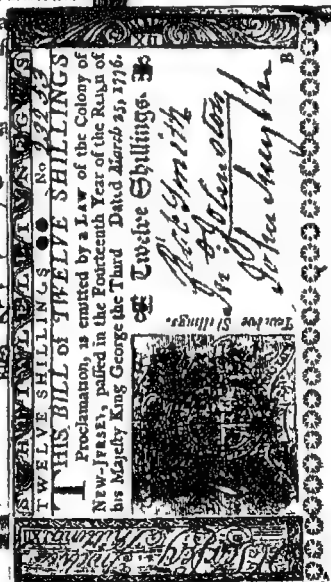 TWELVE SHILLINGS No
THIS BILL of TWELVE SHILLINGS
Proclamation, is emitted by a Law of the Colony of
NEW-JERSEY, paſſed in the Fourteenth Year of the Reign of
his Majeſty King George the Third Dated March 25, 1776.
Twelve Shillings.
Rich Smith
Jn Johnston
John Smyth
Twelve Shillings.
XII
B